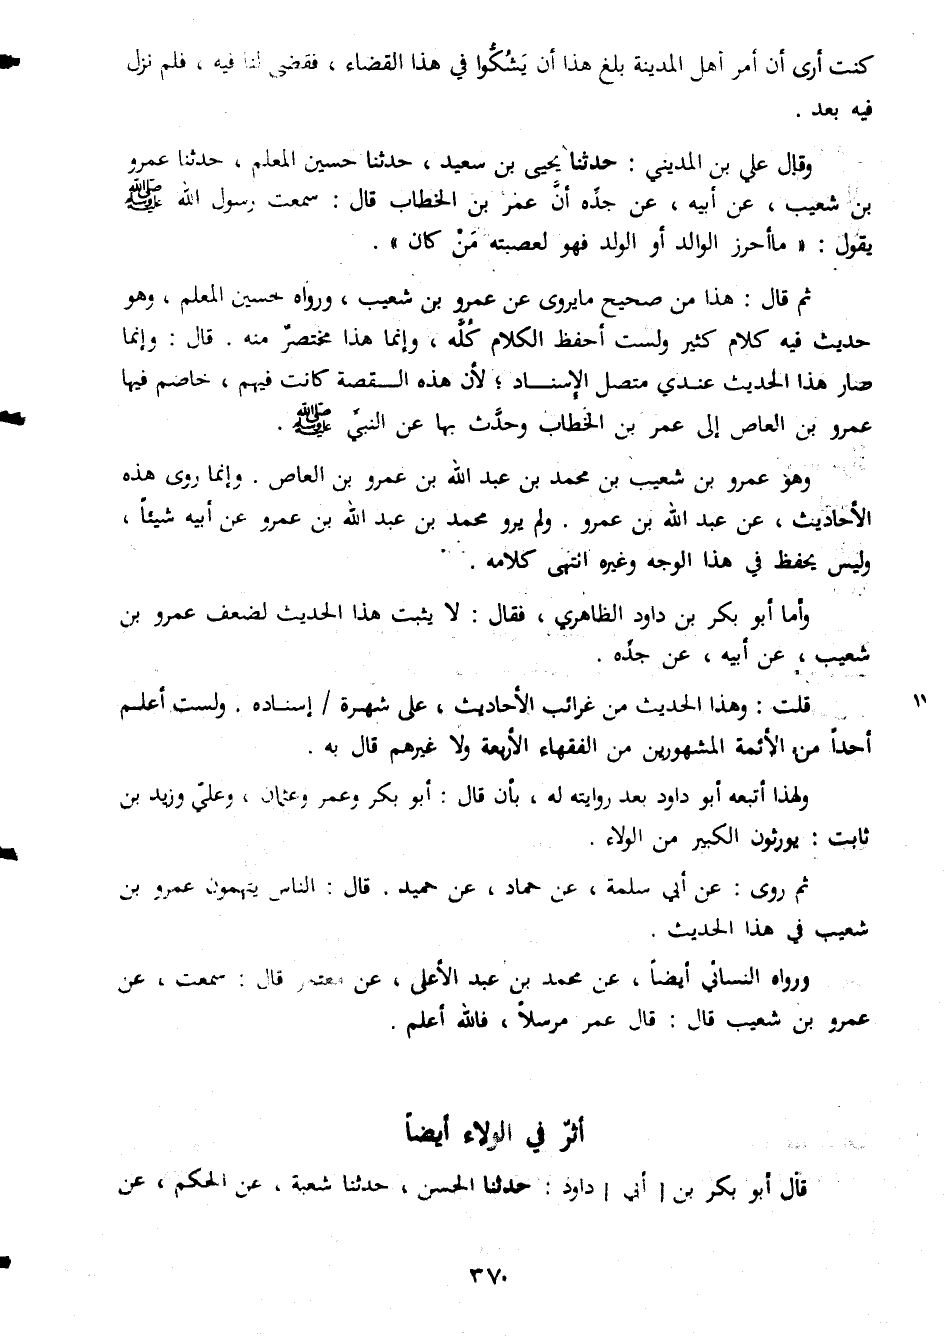 كنت أرى أن أمر أهل المدينة بلغ هذا أن يَشُكُّوا في هذا القضاء ، فقضى لنا فيه ، فلم نزل
فيه بعد .
وقال علي بن المديني : حدثنا يحيى بن سعيد ، حدثنا حسين المعلم ، حدثنا عمرو
بن شعيب ، عن أبيه ، عن جدّه أنَّ عمر بن الخطاب قال : سمعت رسول الله ﷺ
يقول : « ماأحرز الوالد أو الولد فهو لعصبته مَنْ كان » .
ثم قال : هذا من صحيح مايروى عن عمرو بن شعيب ، ورواه حسين المعلم ، وهو
حديث فيه كلام كثير ولست أحفظ الكلام كُلَّه ، وإنما هذا مختصرٌ منه . قال : وإنما
صار هذا الحديث عندي متصل الإسناد ؛ لأن هذه القصة كانت فيهم ، خاصم فيها
عمرو بن العاص إلى عمر بن الخطاب وحدَّث بها عن النبيّ ﷺ .
وهو عمرو بن شعيب بن محمد بن عبد الله بن عمرو بن العاص . وإنما روى هذه
الأحاديث ، عن عبد الله بن عمرو . ولم يرو محمد بن عبد الله بن عمرو عن أبيه شيئاً ،
وليس يحفظ في هذا الوجه وغيره انتهى كلامه .
وأما أبو بكر بن داود الظاهري ، فقال : لا يثبت هذا الحديث لضعف عمرو بن
شعيب ، عن أبيه ، عن جدّه .
قلت : وهذا الحديث من غرائب الأحاديث ، على شهرة / إسناده . ولست أعلم
١١
أحداً من الأئمة المشهورين من الفقهاء الأربعة ولا غيرهم قال به .
ولهذا أتبعه أبو داود بعد روايته له ، بأن قال : أبو بكر وعمر وعثمان ، وعليّ وزيد بن
ثابت : يورثون الكبير من الولاء .
ثم روى : عن أبي سلمة ، عن حماد ، عن حميد . قال : الناس يتهمون عمرو بن
شعيب في هذا الحديث .
ورواه النسائي أيضاً ، عن محمد بن عبد الأعلى ، عن معتمر قال : سمعت ، عن
عمرو بن شعيب قال : قال عمر مرسلاً ، فالله أعلم .
أثرٌ في الولاء أيضاً
قال أبو بكر بن [ أبي ] داود : حدثنا الحسن ، حدثنا شعبة ، عن الحكم ، عن
٣٧٠